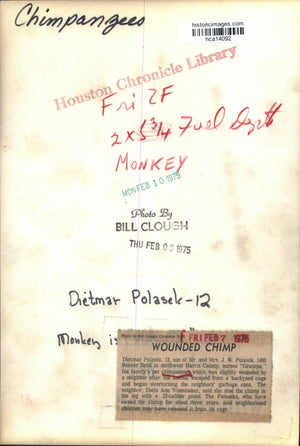 Chimpanzees
historicimages.com
hca14092
Houston Chronicle Library
Fri 2F
2 x 5 3/4
MONKEY
MON FEB 10 1975
Photo By
BILL CLOUGH
THU FEB 00 1975
Dietmar Polasek-12
Monkey is
FRI FEB 7 1975
WOUNDED CHIMP
Dietmar Polasek, 12, son of Mr. and Mrs. J. W. Polasek,
Beaver Bend in northwest Harris County, nurses "Gramma,"
the family's pet chimpanzee which was slightly wounded by
a neighbor after the animal escaped from a backyard cage
and began overturning the neighbors' garbage cans. The
neighbor, Doris Ann Wisenbaker, said she shot the chimp in
the leg with a .22-caliber pistol. The Polaseks, who have
owned the chimp for about three years, said neighborhood
children may have released it from its cage.